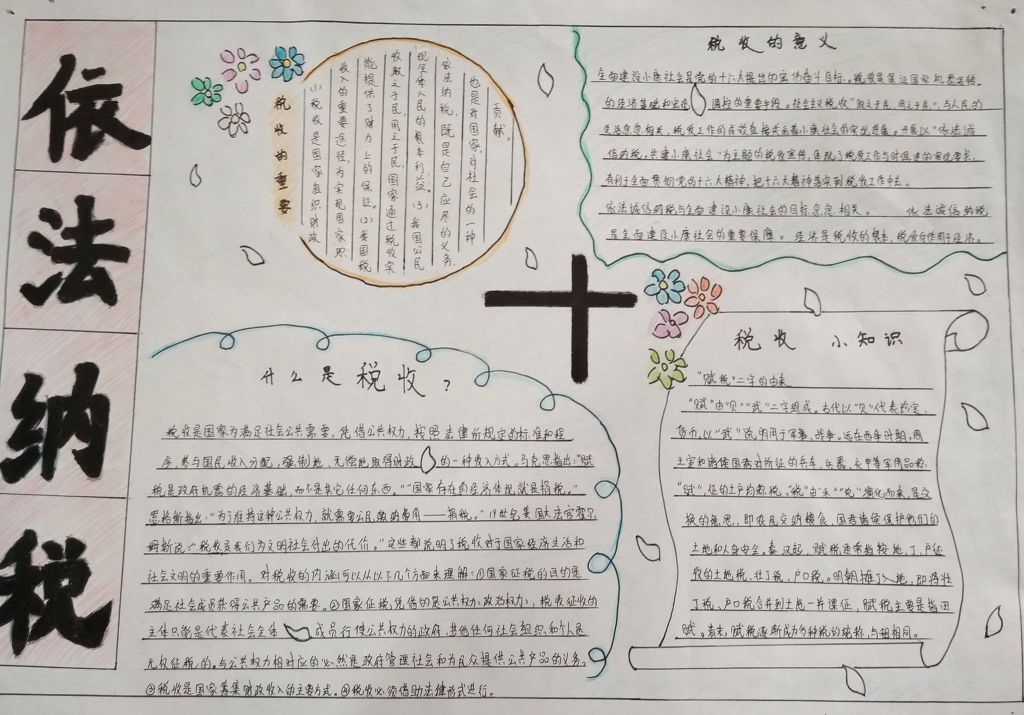 依法纳税
税收的重要
(1)税收是国家组织财政
收入的重要途径,为实现国家职
能提供了财力上的保证。(2)我国税
收取之于民,用之于民,国家通过税收实
现尽体人民的根本利益。(3)我国公民
依法纳税,既是自己应尽的义务,
也是对国家,对社会的一种
贡献。
税收的意义
全面建设小康社会是党的十六大提出的宏伟奋斗目标。税收是保证国家机器运转
的经济基础和宏观调控的重要手段。社会主义税收“取之于民,用之于民”,与人民的
生活息息相关,税收工作的成效直接关系着小康社会的实现进程。开展以“依法诚
信纳税,共建小康社会”为主题的税收宣传,体现了税收工作与时俱进的客观要求,
有利于全面贯彻党的十六大精神,把十六大精神落实到税收工作中去。
依法诚信纳税与全面建设小康社会的目标息息相关。 依法诚信纳税
是全面建设小康社会的重要保障。经济是税收的根本,税收反作用于经济。
什么是税收?
税收是国家为满足社会公共需要,凭借公共权力,按照法律所规定的标准和程
序,参与国民收入分配,强制地、无偿地取得财政的一种收入方式。马克思指出:“赋
税是政府机器的经济基础,而不是其它任何东西。”“国家存在的经济体现就是捐税。”
恩格斯指出:“为了维持这种公共权力,就需要公民缴纳费用——捐税。”19世纪美国大法官霍尔
姆斯说:“税收是我们为文明社会付出的代价。”这些都说明了税收对于国家经济生活和
社会文明的重要作用。对税收的内涵可以从以下几个方面来理解:①国家征税的目的是
满足社会成员获得公共产品的需要。②国家征税凭借的是公共权力(政治权力),税收征收的
主体只能是代表社会全体成员行使公共权力的政府,其他任何社会组织和个人是
无权征税的。与公共权力相对应的必然是政府管理社会和为民众提供公共产品的义务。
③税收是国家筹集财政收入的主要方式。④税收必须借助法律形式进行。
税收 小知识
“赋税”二字的由来
“赋”由“贝”“武”二字组成。古代以“贝”代表珍宝、
货币,以“武”说明用于军事、战争。远在西周时期,周
王室和诸侯国君对所征的兵车、兵器、衣甲等军用品称
“赋”,征的土产物称税。“税”由“禾”“兑”演化而来,是交
换的意思,即农民交纳粮食,国君诸侯保护他们的
土地和人身安全。秦汉起,赋税逐渐指按地、丁、户征
收的土地税、壮丁税、户口税。明朝摊丁入地,即将壮
丁税、户口税合并到土地一并课征,赋税主要是指田
赋。清末,赋税逐渐成为多种税的统称,与租相同。